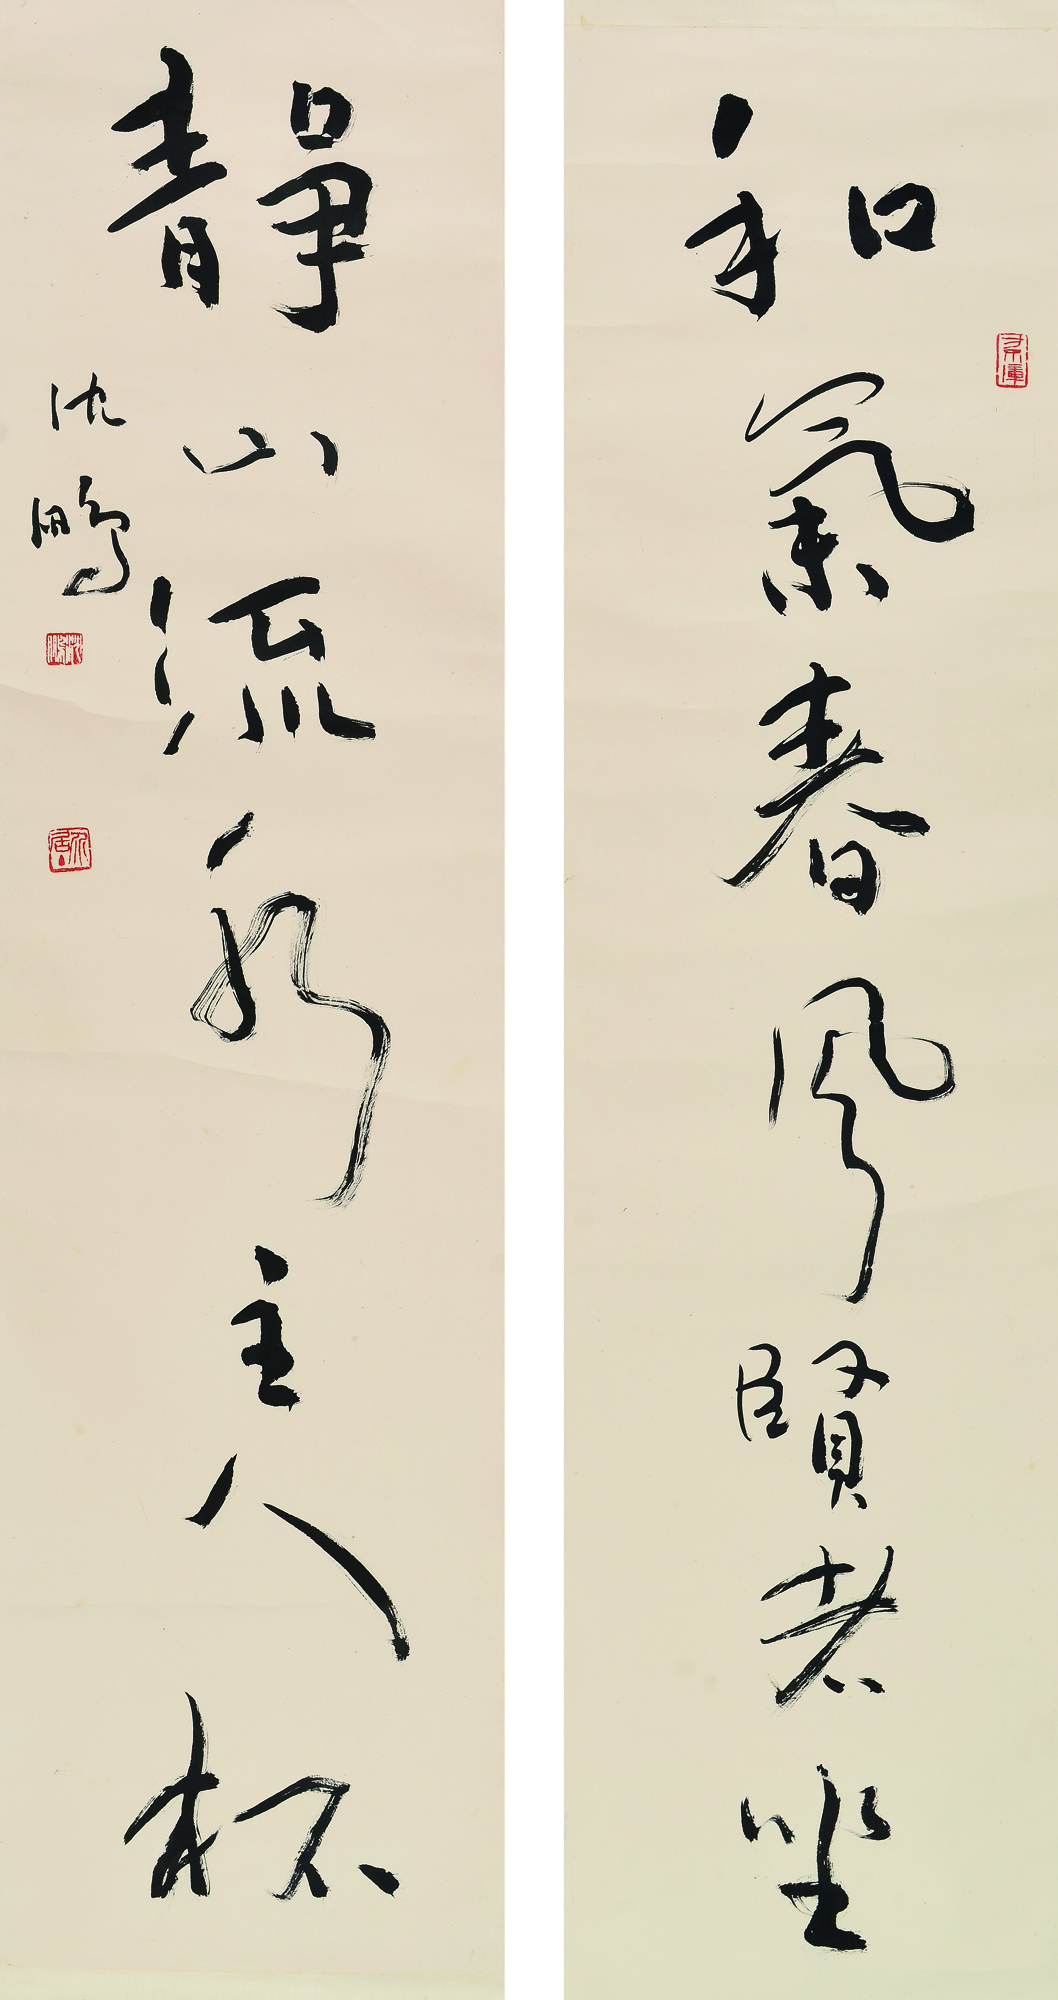 和氣春風賢者坐
靜山流水主人杯
沈鵬
沈鵬